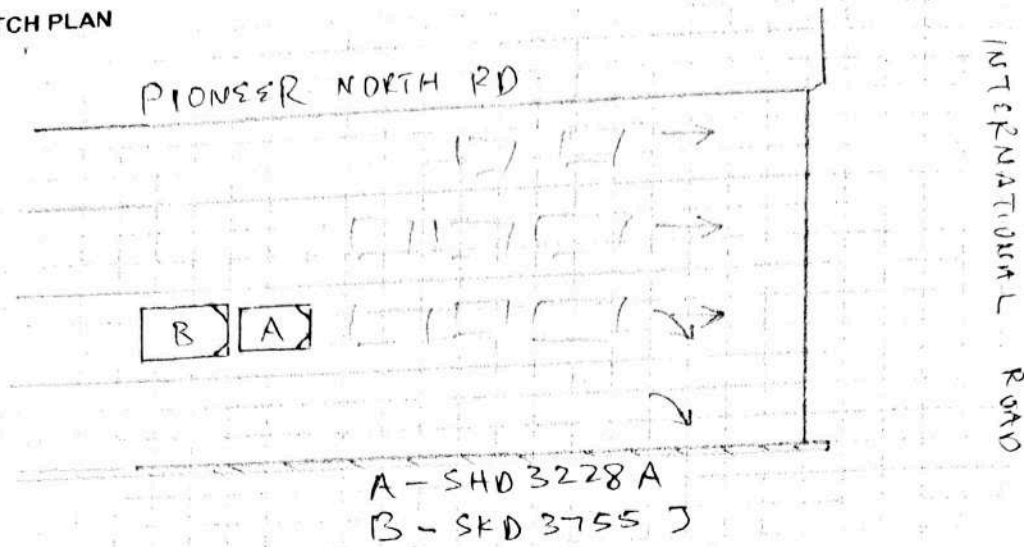 TCH PLAN
PIONEER NORTH RD
INTERNATIONAL ROAD
B A
A - SHD 3228 A
B - SKD 3755 J